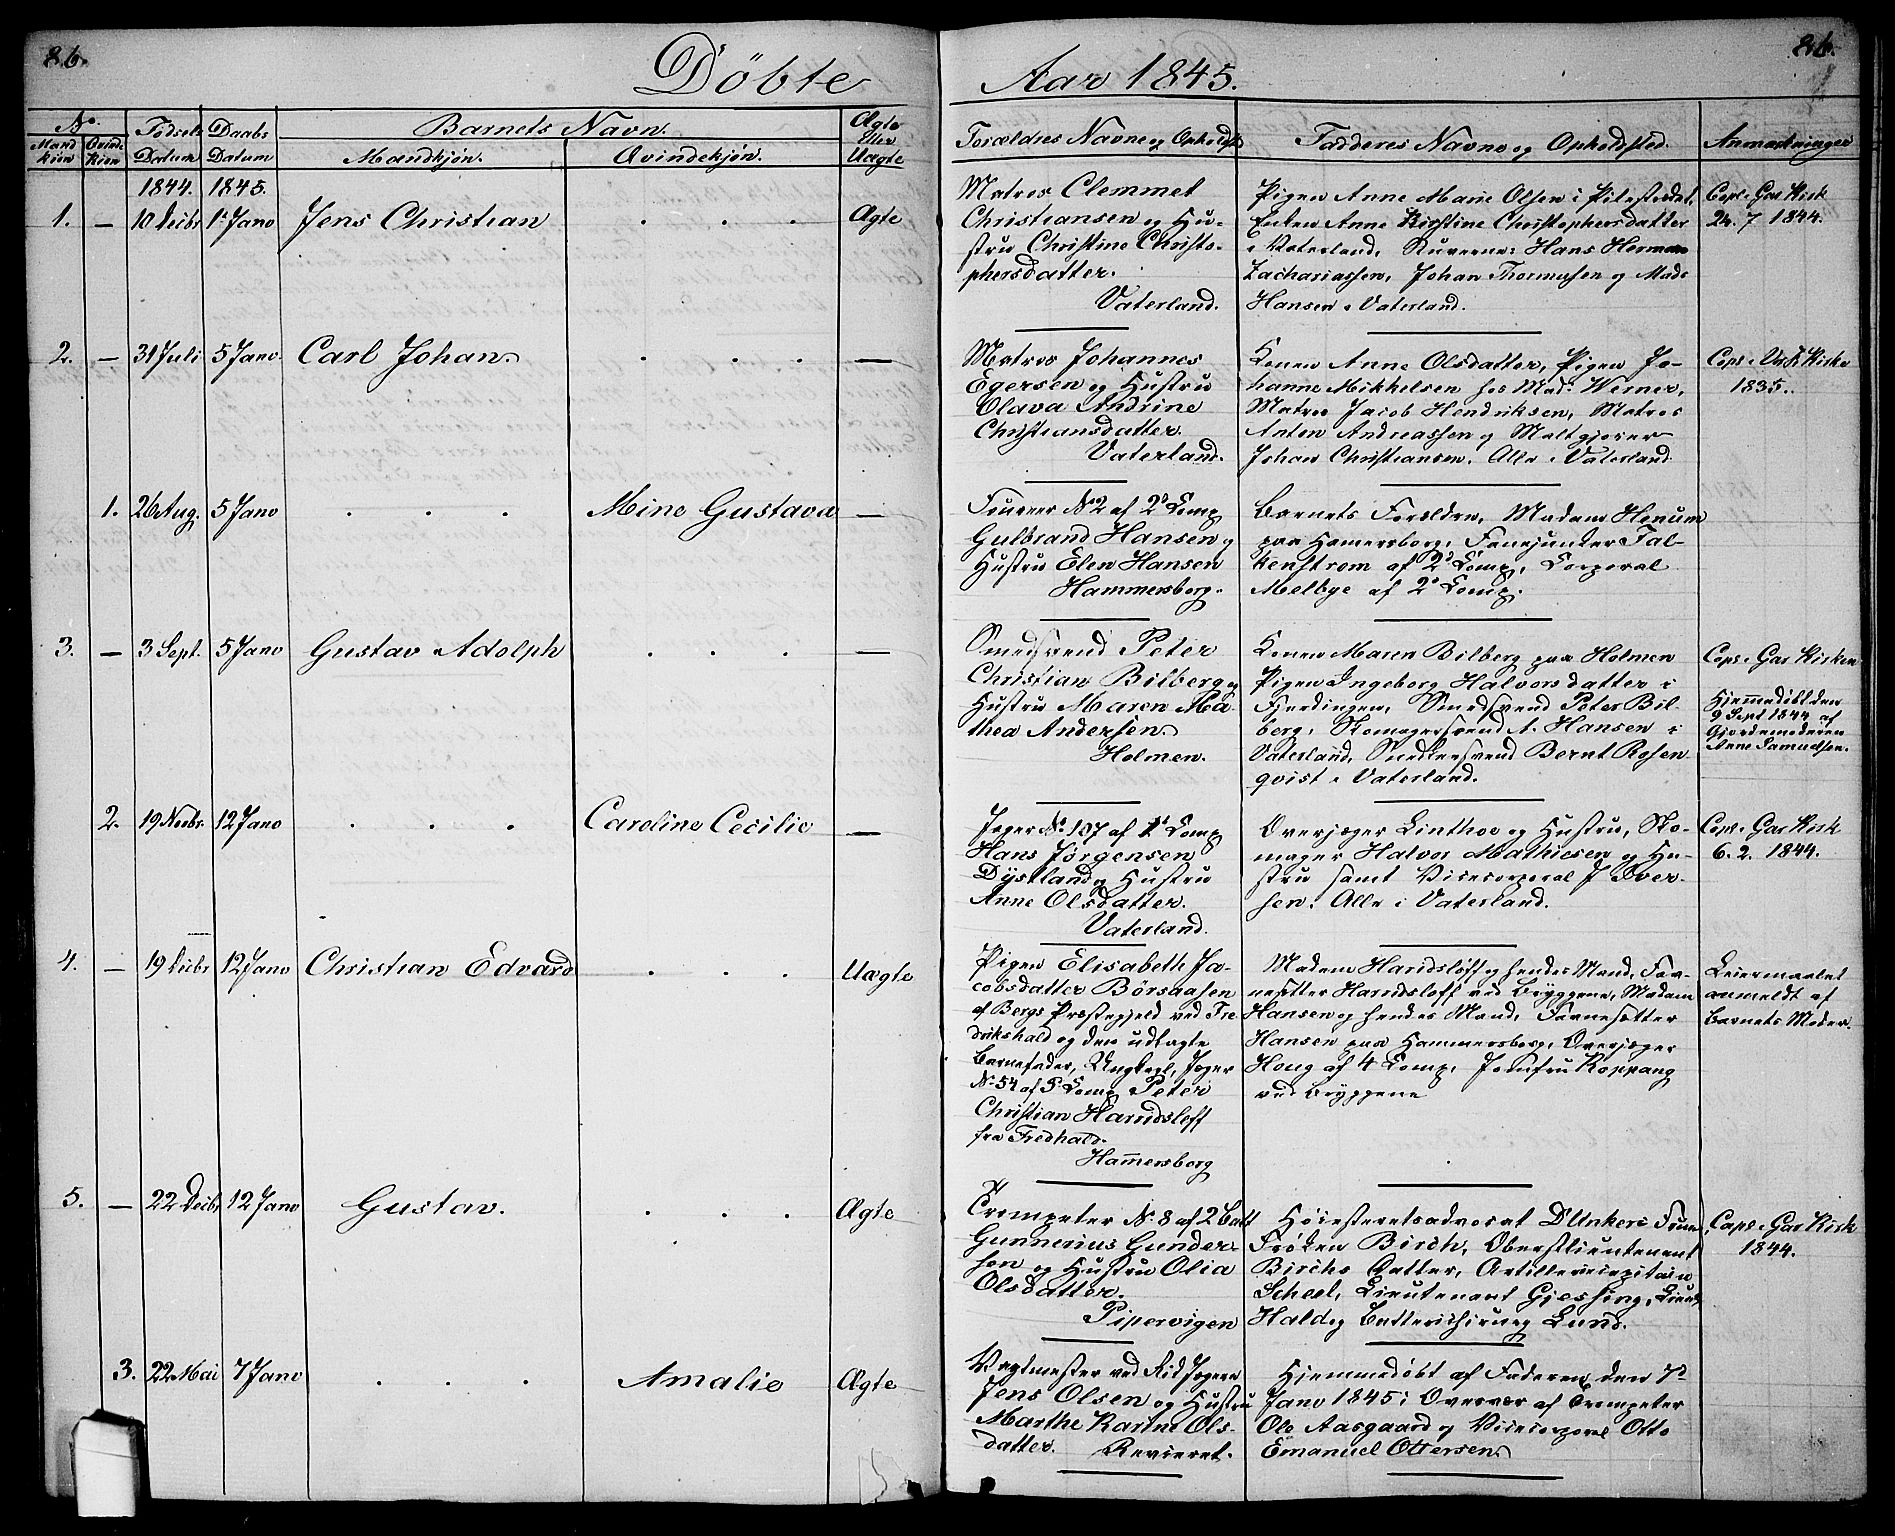 86.
Döbte
Aar 1845.
86.
No.
Mandkiön
Qvindekiön
Födsels Datum
Daabs Datum
Barnets Navn.
Mandkjön.
Qvindekjön.
Ægte eller Uægte
Forældres Navne og Opholdst
Fadderes Navne og Opholdsted.
Anmærkninger
1844. 1845.
1. — 10 Decbr 1 Janv Jens Christian . . . Ægte
Matros Clemmet
Christiansen og Hu-
stru Christine Christo-
phersdatter.
Vaterland.
Pigen Anne Marie Olsen i Pilestrædet,
Enken Anne Kirstine Christophersdatter
i Vaterland, Hans Herman
Zachariassen, Johan Thomassen og Mads
Hansen i Vaterland.
Cop. i Gar Kirk
24. 7 1844.
2. — 31 Juli 5 Janv. Carl Johan . . . —
Matros Johannes
Egersen og Hustru
Olava Andrine
Christiansdatter.
Vaterland.
Konen Anne Olsdatter, Pigen Jo-
hanne Mikkelsen hos Mad: Werner,
Matros Jacob Hendriksen, Matros
Anton Andreassen og Maltgjører
Johan Christiansen. Alle i Vaterland.
Cop. i Kirke
1835.
1. 26 Aug. 5 Janv . . . Mine Gustava —
Fourer No 2 af 2d Comp
Gulbrand Hansen og
Hustru Elen Hansen
Hammersborg.
Barnets Forældre, Madam Henum
paa Hamersborg, Fanejunker Fal-
kenstrøm af 2d Comp, Corporal
Melbye af 2d Comp.
3. — 3 Sept. 5 Janv Gustav Adolph . . . —
Smedsvend Peter
Christian Bilberg og
Hustru Maren Ma-
thea Andersen.
Holmen.
Konen Maren Bilberg paa Holmen
Pigen Ingeborg Halvorsdatter i
Fjerdingen, Smedsvend Peter Bil-
berg, Skomagersvend A. Hansen i
Vaterland, Snedkersvend Bernt Rosen
qvist i Vaterland.
Cop. i Gar Kirken
Hjemmedöbt den
9 Sept 1844 af
Gjordemoderen
Anne Samuelsen.
2. 19 Novbr. 12 Janv . . . Caroline Cecilie —
Jæger No 107 af 1st Comp
Hans Jørgensen
Dystland og Hustru
Anne Olsdatter.
Vaterland.
Overjæger Linthoe og Hustru, Sko-
mager Halvor Mathiesen og Hu-
stru samt Vicecorporal J Iver-
sen. Alle i Vaterland.
Cop. i Gar Kirk
6. 2. 1844.
4. — 19 Decbr 12 Janv Christian Edvard . . . Uægte
Pigen Elisabeth Ja-
cobsdatter Börsaasen
af Bergs Præstegjeld ved Fre
drikshald og den udlagte
Barnefader, Ungkarl, Jæger
No 54 af 5 Comp Peter
Christian Harridsleff
fra Fredhald.
Hamersborg
Madam Haridsleff og hendes Mand, For-
nesetter Harridsleff ved Bryggene, Madam
Hansen og hendes Mand, Fornesetter
Hansen paa Hammersborg, Overjæger
Houg af 4 Comp, Jomfru Koppang
ved Bryggene
Leiermaalet
anmeldt af
Barnets Moder.
5. — 22 Decbr 12 Janv Gustav. . . . Ægte
Trompeter No 8 af 2 Batt
Gunnerius Gunder-
sen og Hustru Olia
Olsdatter.
Pipervigen
Høiesteretsadvocat Dunkers Frue,
Frøken Birch, Oberstlieutenant
Birchs Datter, Artillericapitain
Scheel, Lieutenant Gjessing, Lieut
Hald og Battericirurg Lund.
Cop. i Gar Kirk
1844.
3. 22 Mai 7 Janv . . . Amalie Ægte
Vagtmester ved Rid. Jægerne
Jens Olsen og Hustru
Marthe Karine Ols-
datter. Revieret.
Hjemmedöbt af Faderen den 7d
Janv 1845 i Overvær af Trompeter
Ole Aasgaard og Vicecorporal Otto
Emanuel Ottersen.